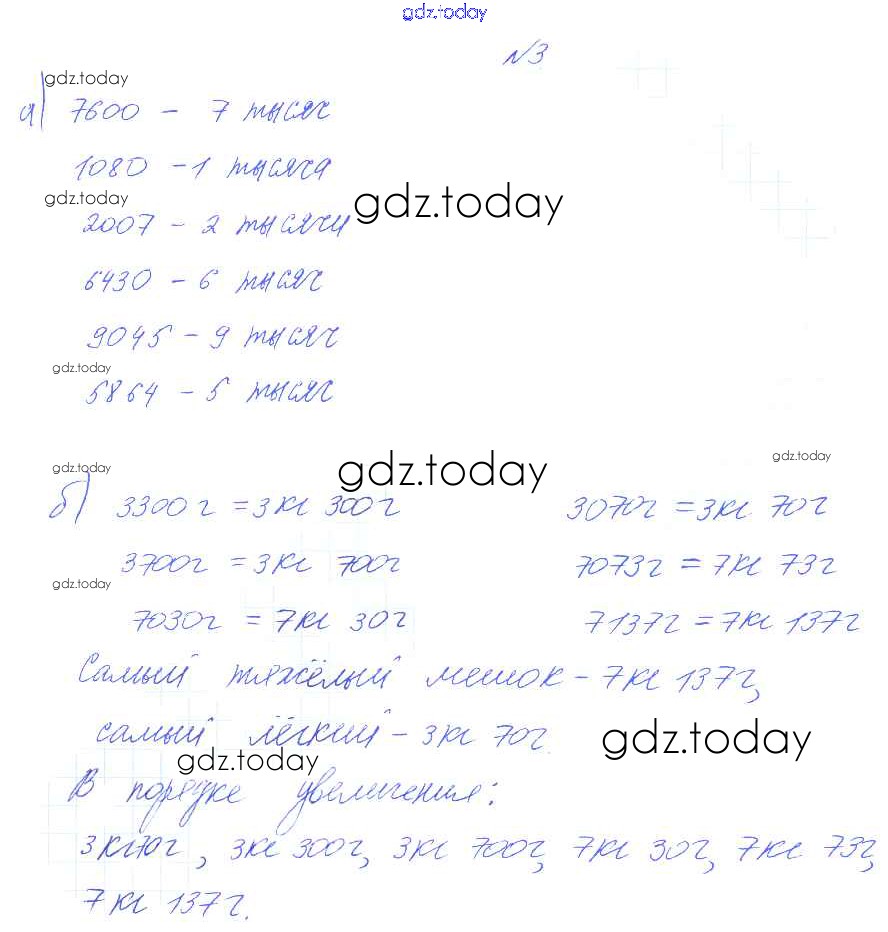 gdz.today
№3
gdz.today
а) 7600 - 7 тысяч
1080 - 1 тысяча
gdz.today
gdz.today
2007 - 2 тысячи
6430 - 6 тысяч
9045 - 9 тысяч
gdz.today
5864 - 5 тысяч
gdz.today
gdz.today
gdz.today
б) 3300г = 3кг 300г 3070г = 3кг 70г
3700г = 3кг 700г 7073г = 7кг 73г
gdz.today
7030г = 7кг 30г 7137г = 7кг 137г
Самый тяжёлый мешок - 7кг 137г,
самый лёгкий - 3кг 70г.
gdz.today
gdz.today
В порядке увеличения:
3кг70г, 3кг 300г, 3кг 700г, 7кг 30г, 7кг 73г,
7кг 137г.